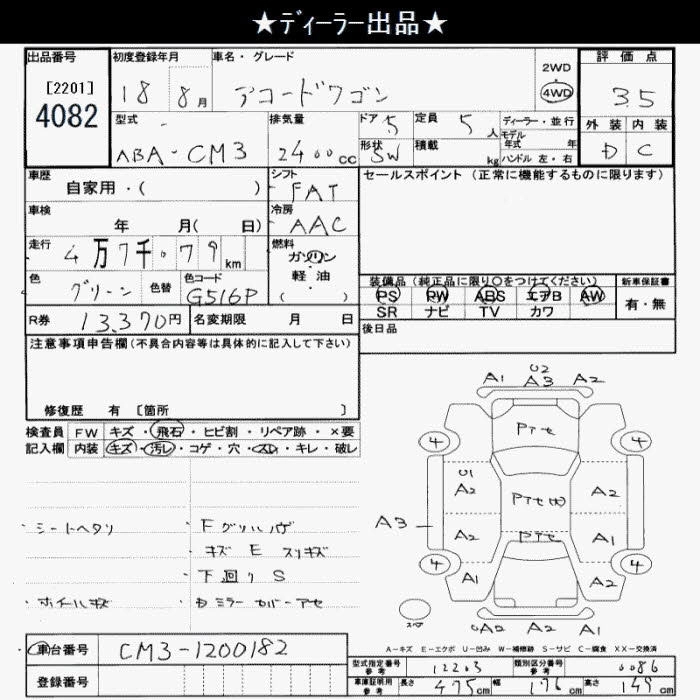 ★ディーラー出品★
出品番号 初度登録年月 車名・グレード 評価点
[2201] 18 8月 アコードワゴン 2WD 4WD 3.5
4082
型式 排気量 ドア 5 定員 5人 ディーラー・並行 外装 内装
モデル年式 年
ABA-CM3 2400cc 形状 SW 積載 kg ハンドル 左・右 D C
車歴 シフト セールスポイント(正常に機能するものに限ります)
自家用・( ) FAT
車検 冷房
年 月( 日) AAC
走行 燃料
4万7千.79km ガソリン
色 色替 色コード 軽油 装備品(純正品に限り○をつけてください) 新車保証書
グリーン G516P ( ) PS PW ABS エアB AW 有・無
SR ナビ TV カワ
R券 13,370円 名変期限 月 日 後日品
注意事項申告欄(不具合内容等は具体的に記入して下さい)
修復歴 有 [箇所 ]
検査員 FW キズ・飛石・ヒビ割・リペア跡・×要
記入欄 内装 キズ・汚レ・コゲ・穴・スレ・キレ・破レ
・シートヘタリ
・ホイールキズ
・キズ E スリキズ
・下廻り S
U2
A1 A3 A2
4 Pアセ 4
U1
A2 A2
A3 A2 Pアセ A1
4 A1 A2 4
スペア A2 A2 A1
A-キズ E-エクボ U-凹み W-補修跡 S-サビ C-腐食 XX-交換済
車台番号 CM3-1200182
登録番号
型式指定番号 参考 12203 類別区分番号 参考 0086
車庫証明用 参考 長さ 475cm 幅 176cm 高さ 149cm